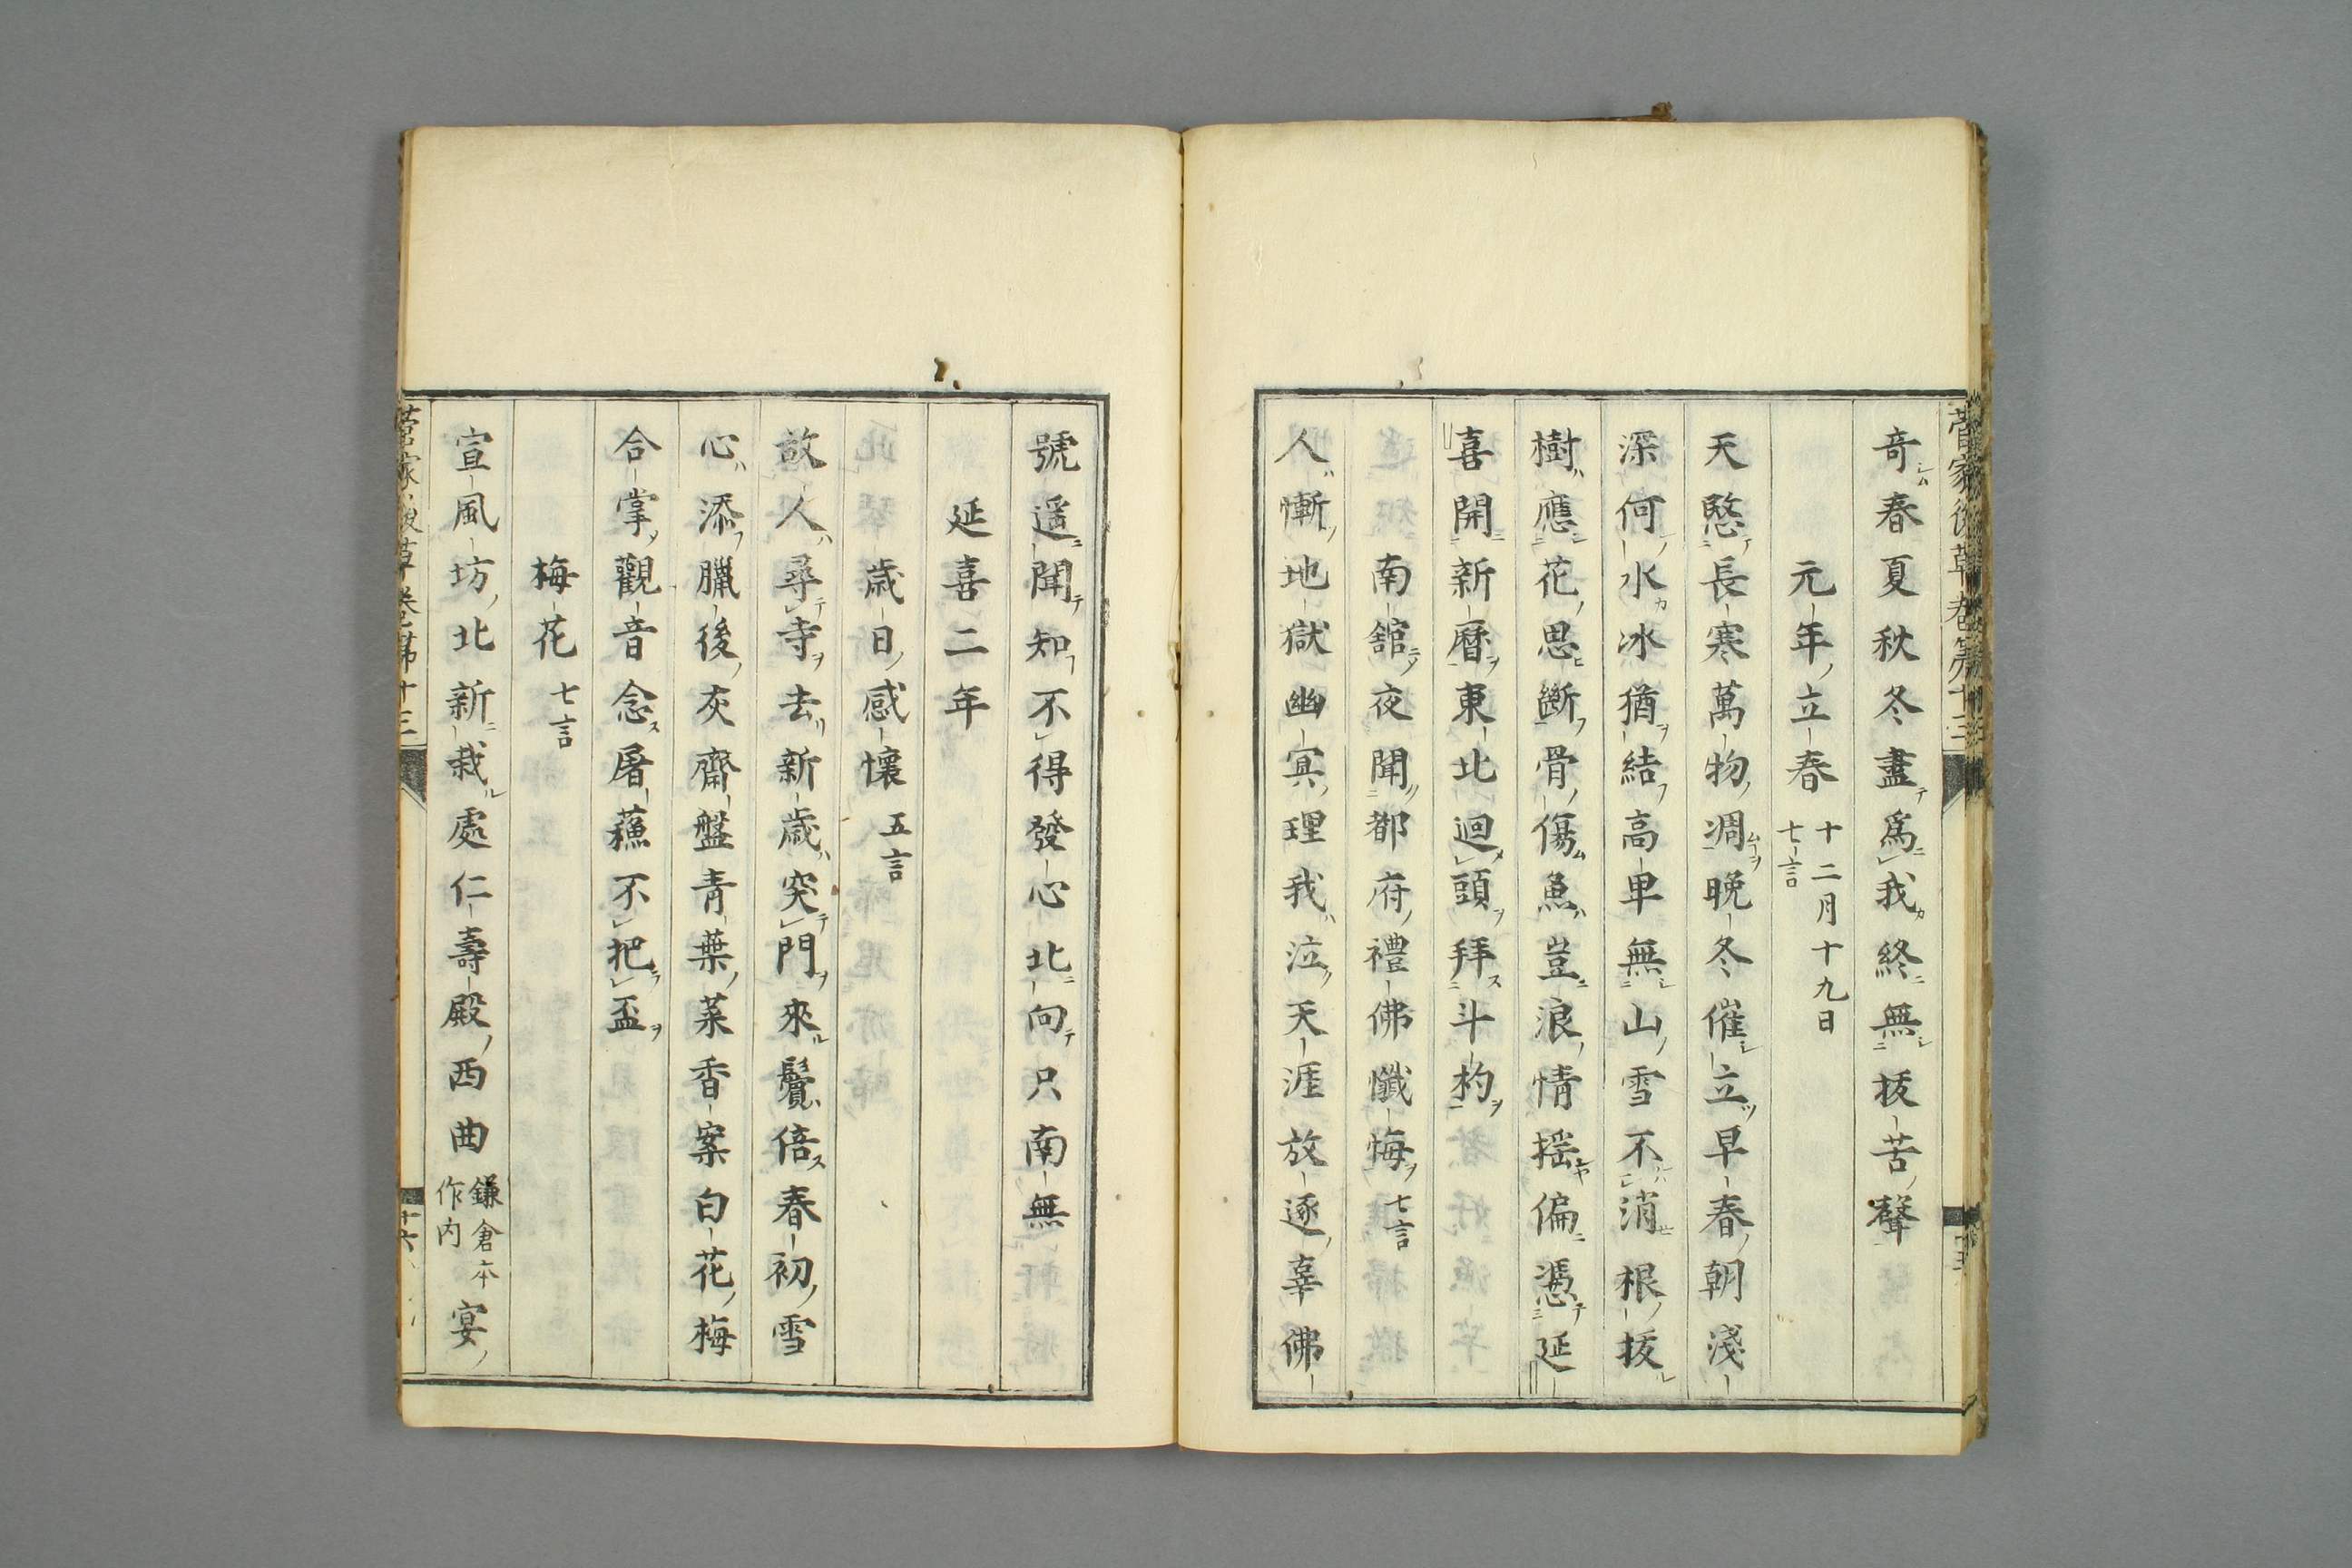 奇春夏秋冬盡爲我終無抜苦聲
元年立春十二月十九日
七言
天愍長寒萬物凋晚冬催立早春朝淺
深何水冰猶結高卑無山雪不消根抜
樹應花思斷骨傷魚豈浪情揺偏憑延
喜開新曆東北迴頭拜斗杓
南舘夜聞都府禮佛懺悔七言
人慚地獄幽冥理我泣天涯放逐辜佛
號遥聞知不得發心北向只南無
延喜二年
歲日感懷五言
故人尋寺去新歲突門來鬢倍春初雪
心添臘後灰齋盤青葉菜香案白花梅
合掌觀音念屠蘓不把盃
梅花七言
宣風坊北新栽處仁壽殿西曲鎌倉本作内宴
菅家後草卷第十三
十六